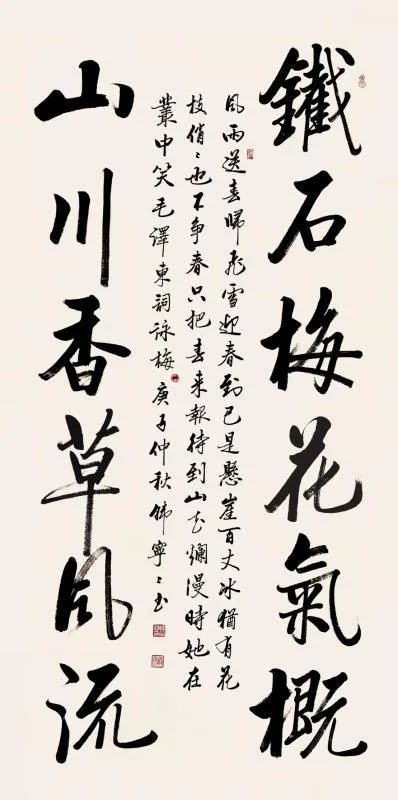 鐵石梅花氣概
風雨送春歸飛雪迎春到已是懸崖百丈冰猶有花
枝俏〻也不争春只把春來報待到山花爛漫時她在
叢中笑毛澤東詞詠梅庚子仲秋寧〻书
山川香草風流